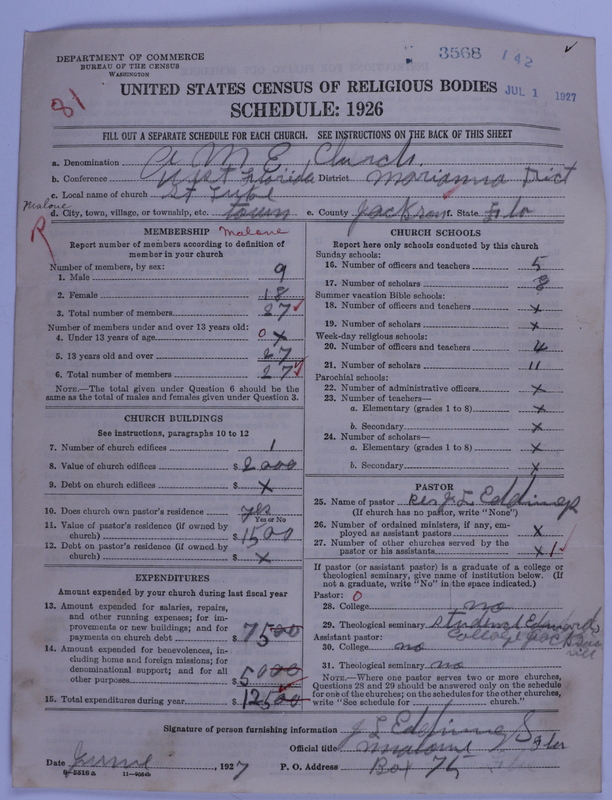 3568 142
DEPARTMENT OF COMMERCE
BUREAU OF THE CENSUS
WASHINGTON
UNITED STATES CENSUS OF RELIGIOUS BODIES
JUL 1 1927
SCHEDULE: 1926
81
FILL OUT A SEPARATE SCHEDULE FOR EACH CHURCH. SEE INSTRUCTIONS ON THE BACK OF THIS SHEET
a. Denomination A M E Church.
b. Conference West Florida District Marianna Dict
c. Local name of church St Luke
Malone
d. City, town, village, or township, etc. town e. County Jackson f. State Flo
R
MEMBERSHIP Malone
Report number of members according to definition of member in your church
Number of members, by sex:
1. Male 9
2. Female 18
3. Total number of members 27
Number of members under and over 13 years old:
4. Under 13 years of age 0 x
5. 13 years old and over 27
6. Total number of members 27
NOTE.—The total given under Question 6 should be
the same as the total of males and females given under Question 3.
CHURCH BUILDINGS
See instructions, paragraphs 10 to 12
7. Number of church edifices 1
8. Value of church edifices $ 2000
9. Debt on church edifices $ x
10. Does church own pastor's residence yes
Yes or No
11. Value of pastor's residence (if owned by
church) $ 1500
12. Debt on pastor's residence (if owned by
church) $ x
EXPENDITURES
Amount expended by your church during last fiscal year
13. Amount expended for salaries, repairs,
and other running expenses; for im-
provements or new buildings; and for
payments on church debt $ 7500
14. Amount expended for benevolences, in-
cluding home and foreign missions; for
denominational support; and for all
other purposes $ 5000
15. Total expenditures during year $ 12500
CHURCH SCHOOLS
Report here only schools conducted by this church
Sunday schools:
16. Number of officers and teachers 5
17. Number of scholars 8
Summer vacation Bible schools:
18. Number of officers and teachers x
19. Number of scholars x
Week-day religious schools:
20. Number of officers and teachers 4
21. Number of scholars 11
Parochial schools:
22. Number of administrative officers x
23. Number of teachers—
a. Elementary (grades 1 to 8) x
b. Secondary x
24. Number of scholars—
a. Elementary (grades 1 to 8) x
b. Secondary x
PASTOR
25. Name of pastor Rev J L
(If church has no pastor, write "None")
26. Number of ordained ministers, if any, em-
ployed as assistant pastors x
27. Number of other churches served by the
pastor or his assistants x 1
If pastor (or assistant pastor) is a graduate of a college or
theological seminary, give name of institution below. (If
not a graduate, write "No" in the space indicated.)
Pastor: 0
28. College no
29. Theological seminary student Edwards
College Jacksonvill
Assistant pastor:
30. College no
31. Theological seminary no
NOTE.—Where one pastor serves two or more churches,
Questions 28 and 29 should be answered only on the schedule
for one of the churches; on the schedules for the other churches,
write "See schedule for church."
Signature of person furnishing information J L
Official title Malone Flor
Date June, 1927 P. O. Address Box 75
8-5516a 11-9054b